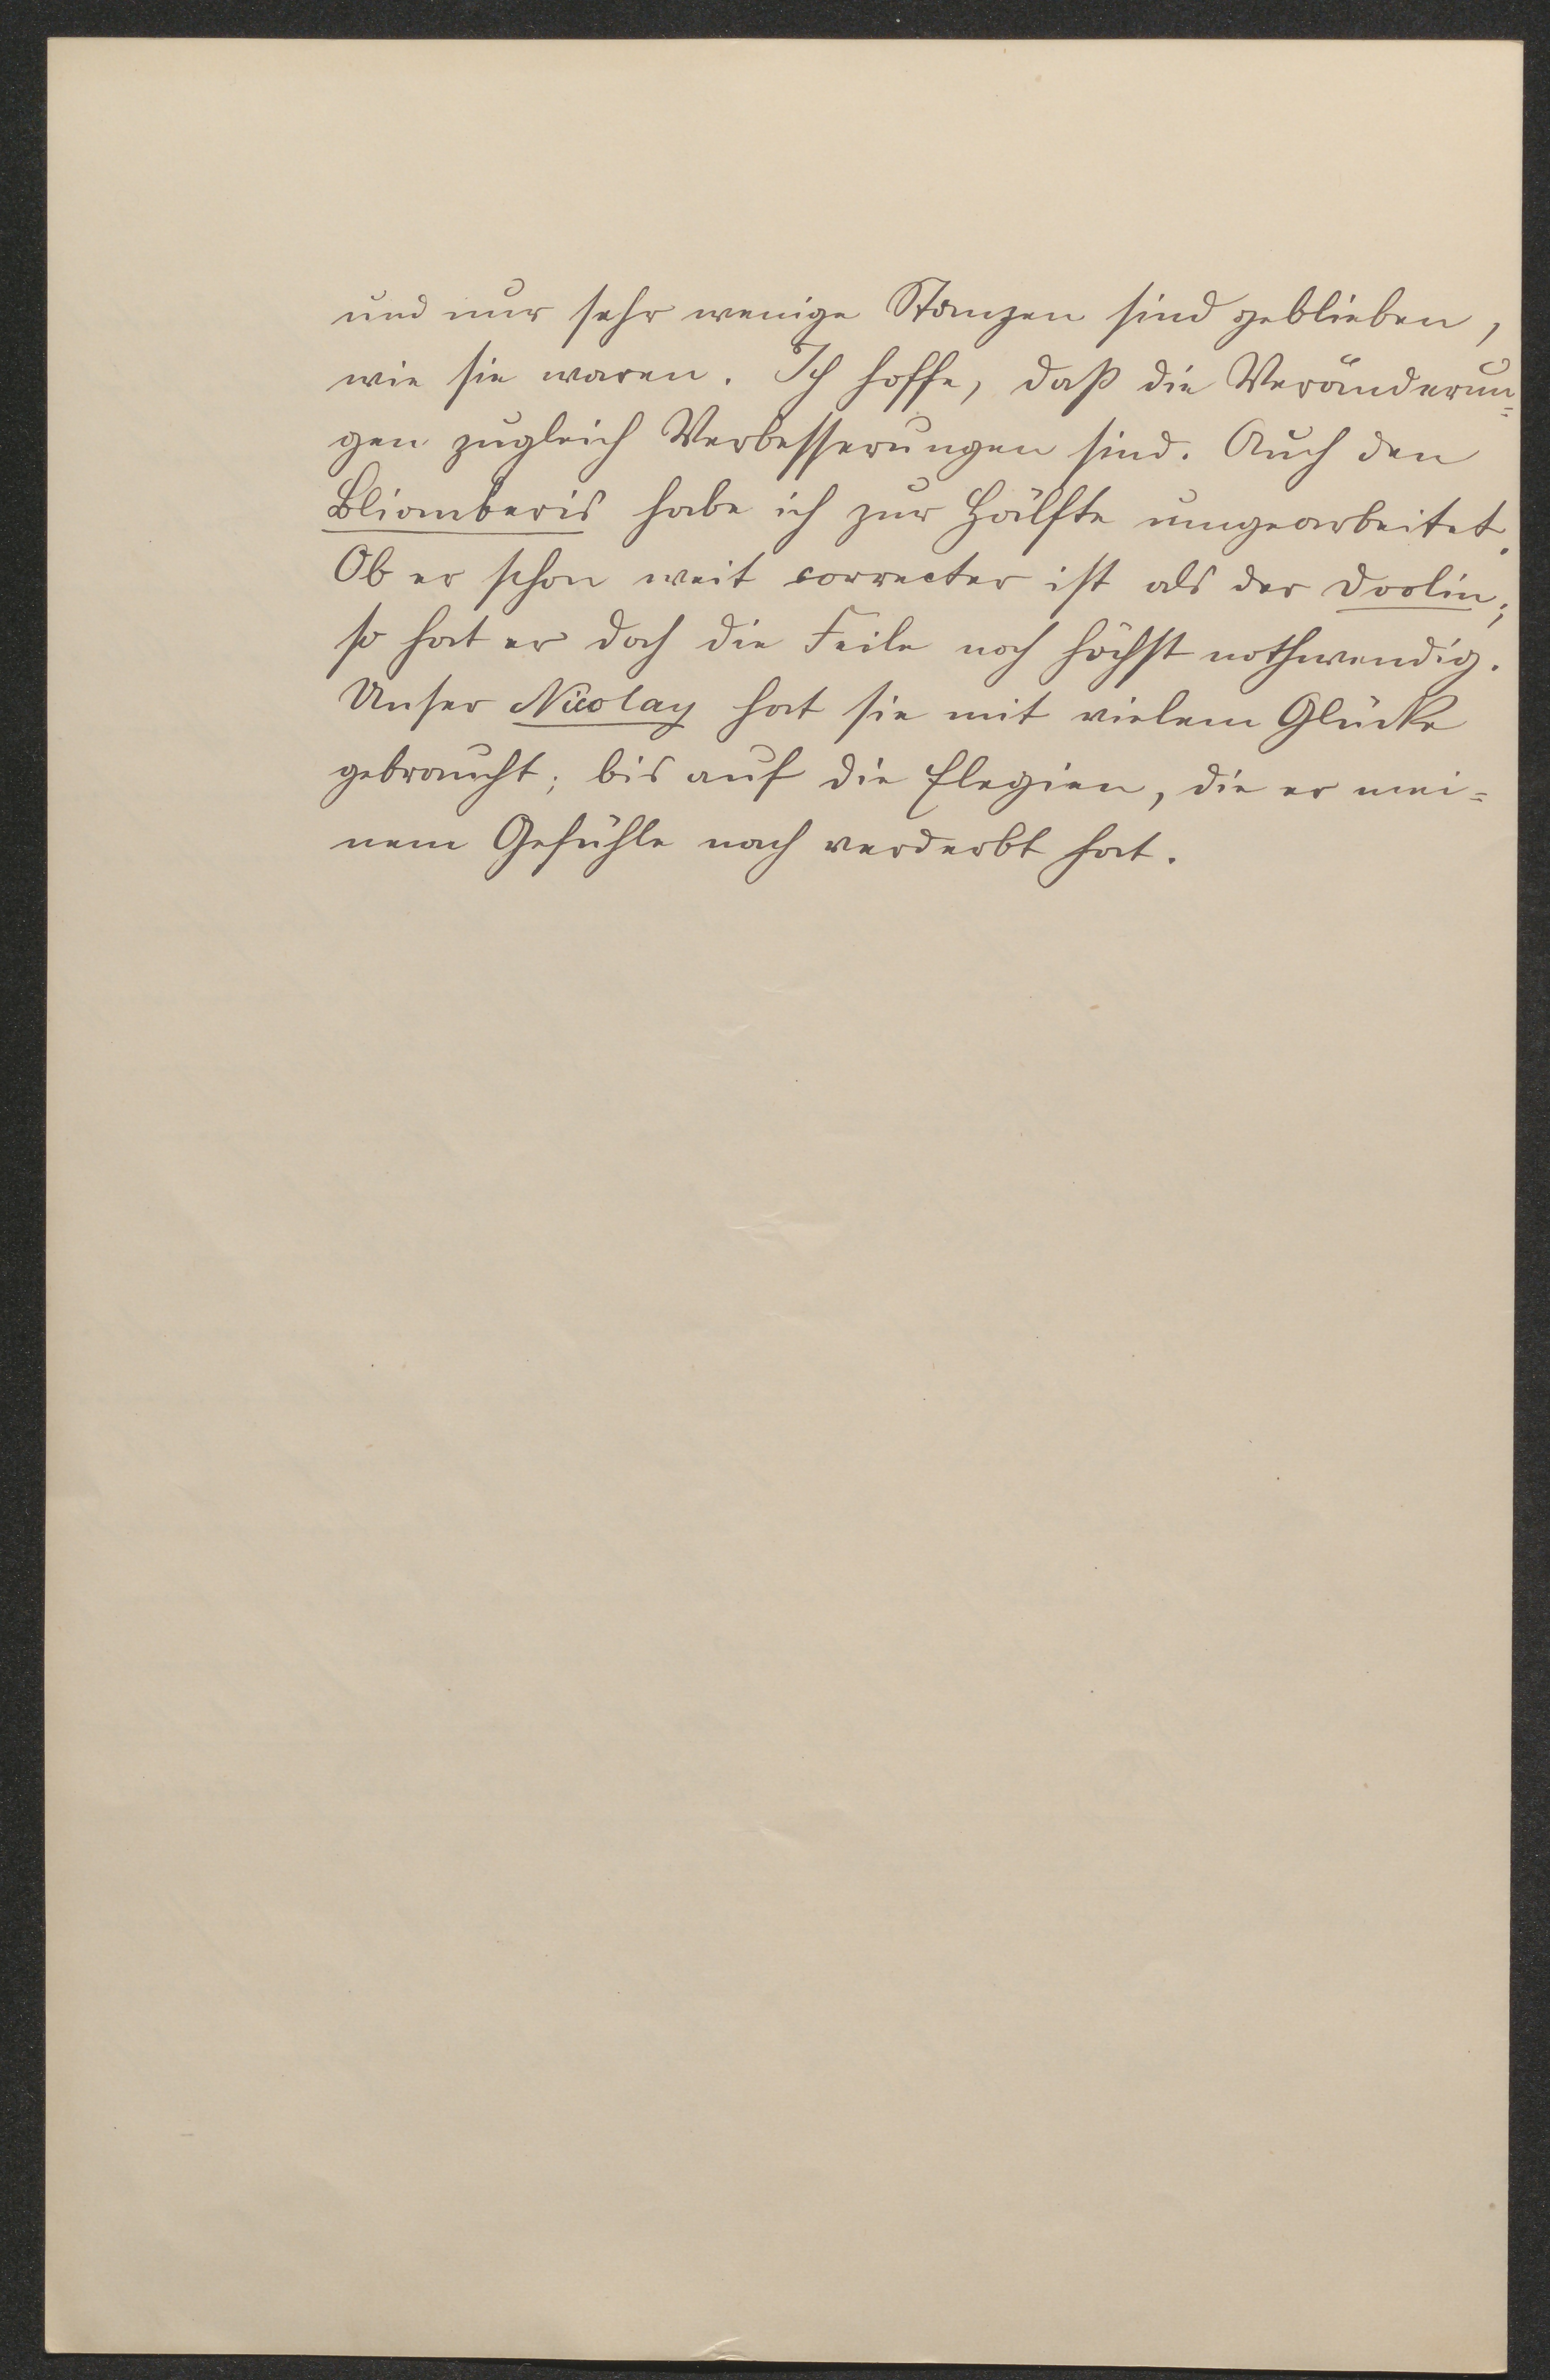 und nur sehr wenige Stanzen sind geblieben,
wie sie waren. Ich hoffe, daß die Veränderun=
gen zugleich Verbesserungen sind. Auch den
Bliomberis habe ich zur Hälfte umgearbeitet.
Ob er schon weit correcter ist als der Doolin;
so hat er doch die Feile noch höchst nothwendig.
Unser Nicolay hat sie mit vielem Glücke
gebraucht; bis auf die Elegien, die er mei=
nem Gefühle nach verderbt hat.